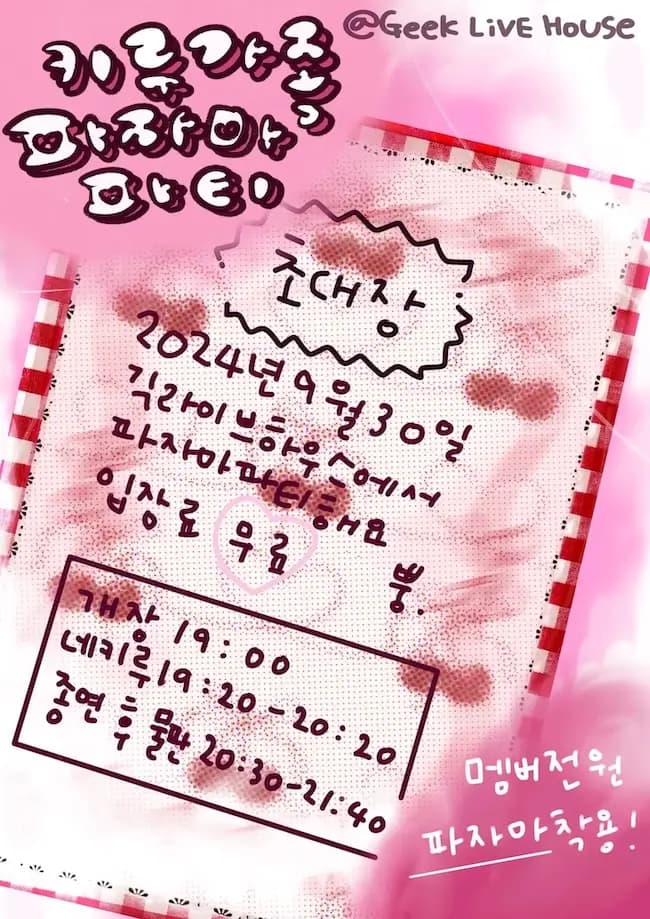 @GEEK LIVE HOUSE
키루가줌
파자마
파티
초대장
2024년 9월 30일
긱라이브하우스에서
파자마파티해요
입장료 무료
뿡.
개장 19:00
네키루 19:20-20:20
종연 후 물판 20:30-21:40
멤버전원
파자마착용!